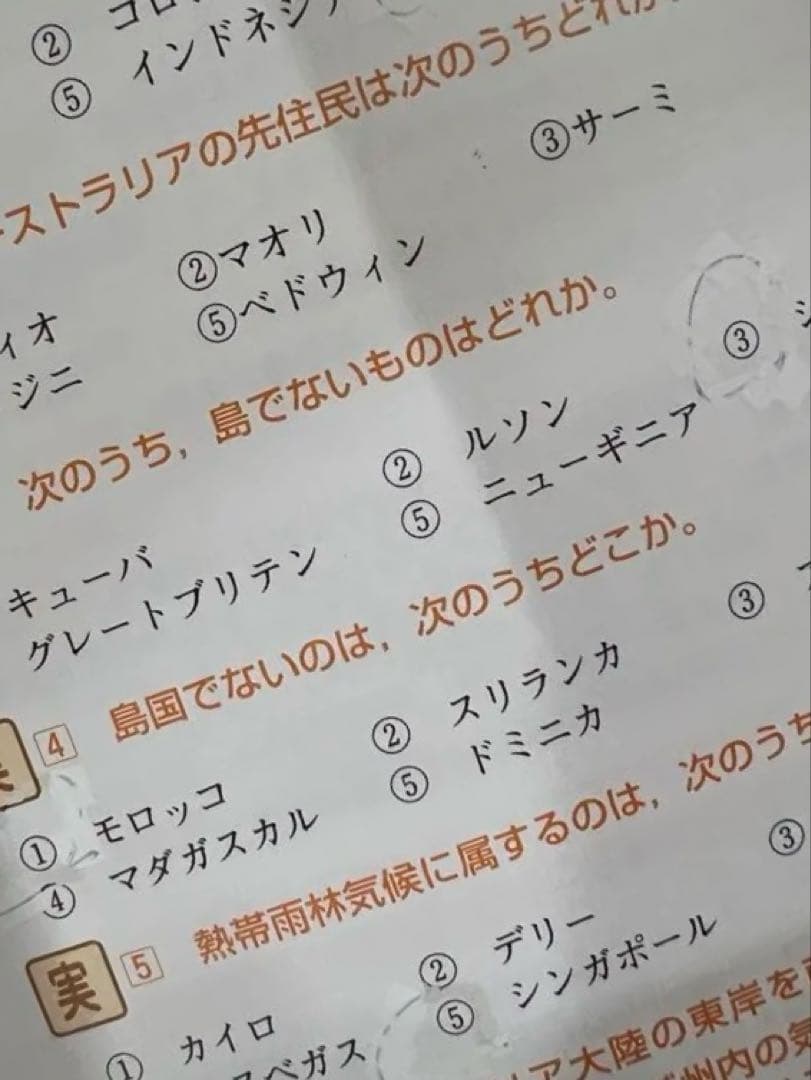 ②
⑤ インドネシア
ストラリアの先住民は次のうちどれか
②マオリ ③サーミ
ィオ ⑤ベドウィン
ジニ
次のうち，島でないものはどれか。
キューバ ② ルソン ③
グレートブリテン ⑤ ニューギニア
4 島国でないのは，次のうちどこか。
① モロッコ ② スリランカ ③
④ マダガスカル ⑤ ドミニカ
実 5 熱帯雨林気候に属するのは，次のうち
① カイロ ② デリー ③
ベガス ⑤ シンガポール
ア大陸の東岸を
州内の気